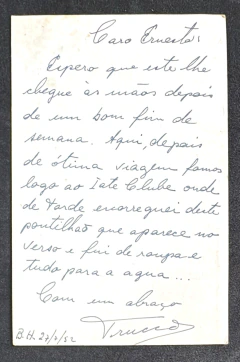 Caro Ernesto:
Espero que este lhe
chegue às mãos depois
de um bom fim de
semana. Aqui, depois
de ótima viagem fomos
logo ao Iate Clube onde
de tarde escorreguei deste
pontilhão que aparece no
verso e fui de roupa e
tudo para a agua...
Com um abraço
B.H. 27/2/52